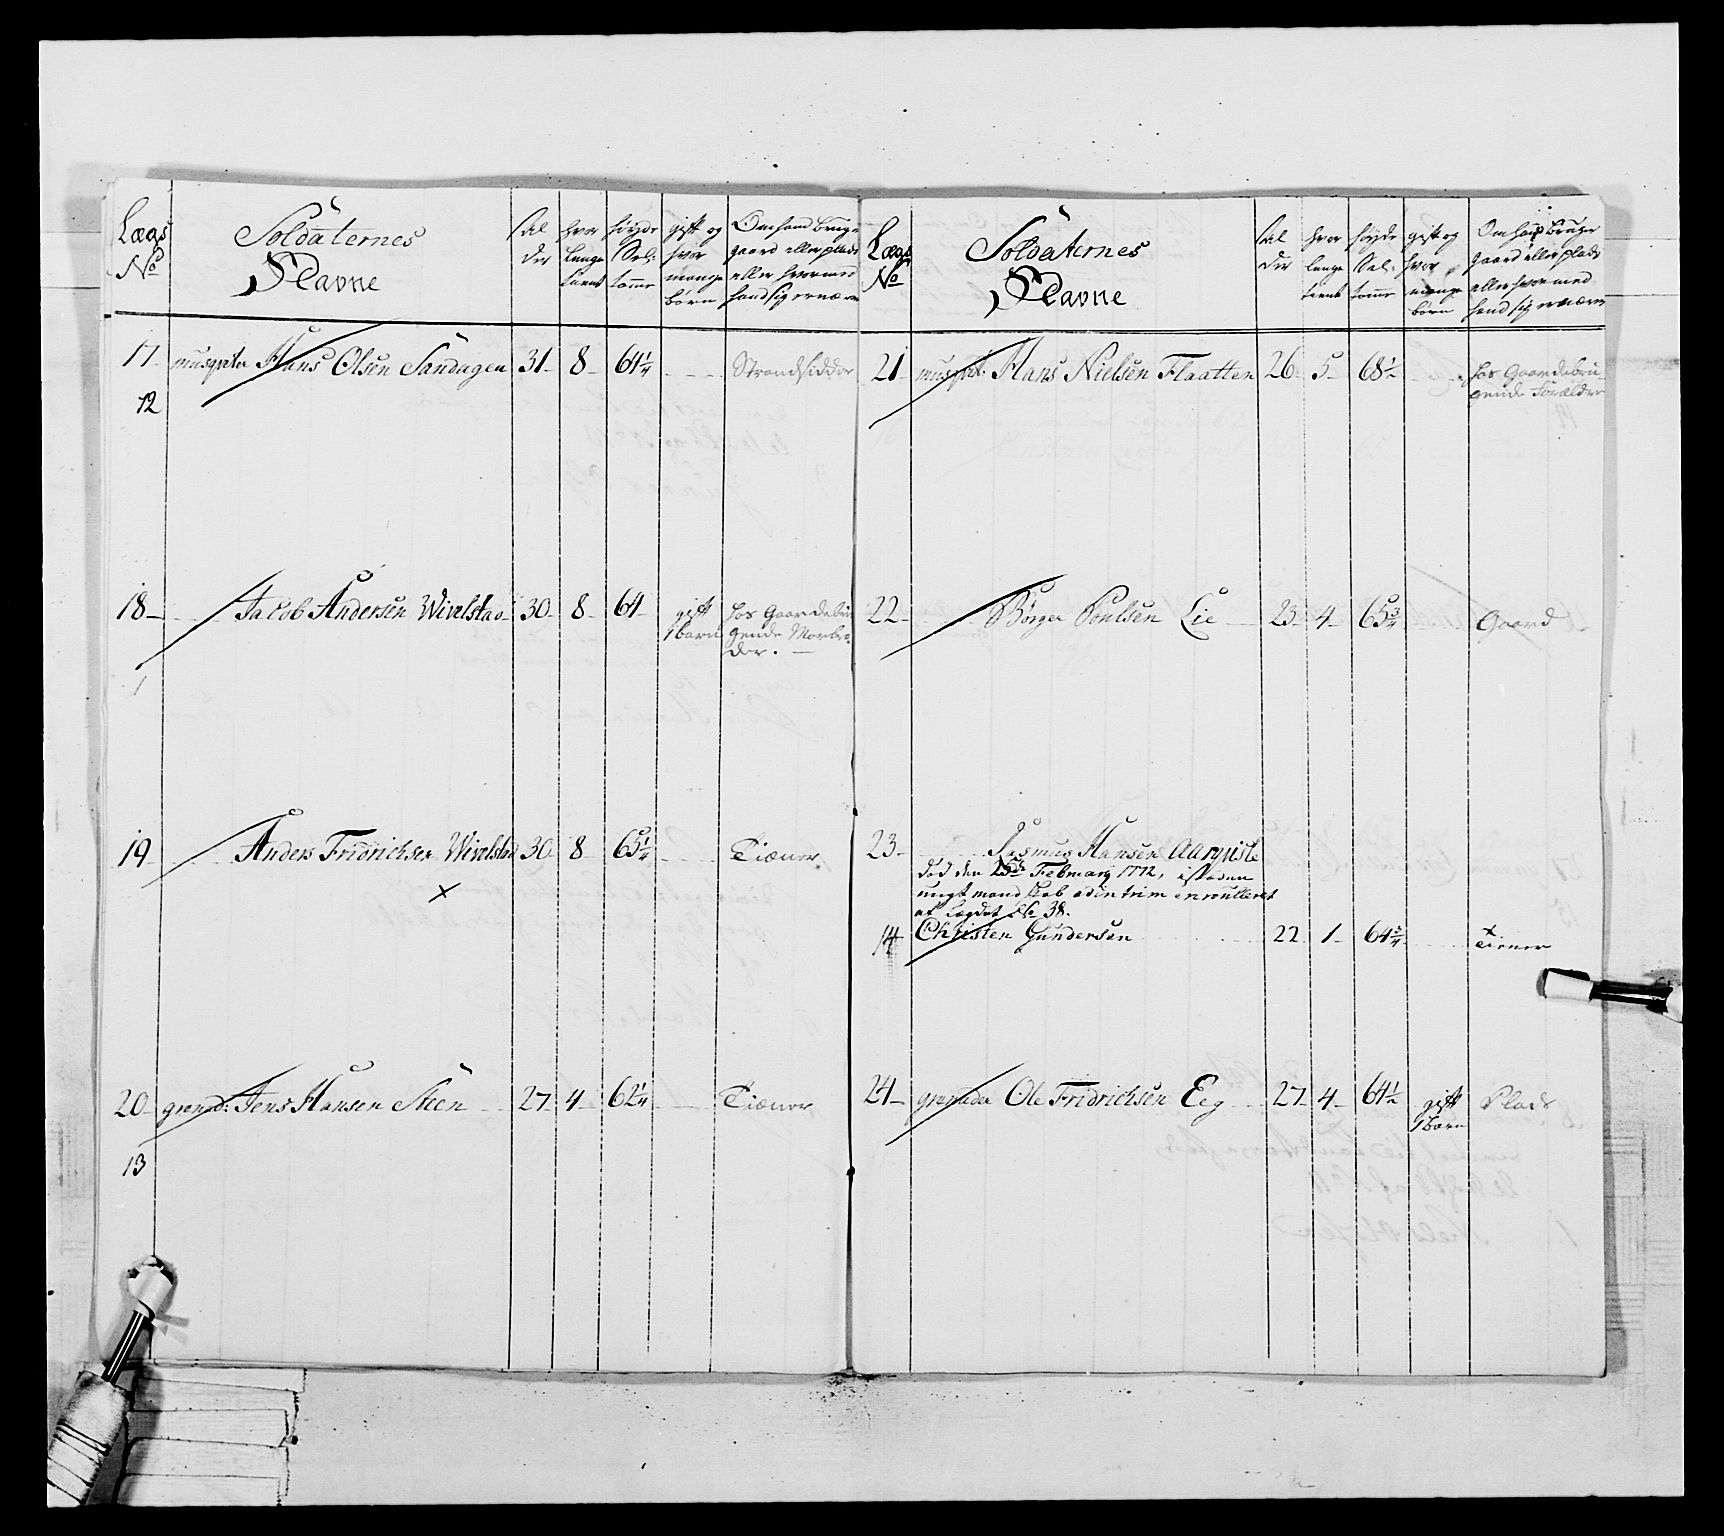 Lægs
No
Soldaternes
Navne
al
der
hvor
lenge
tient
høyde
Sel:
tomme
gift og
hvor
mange
børn
Om hand bruger
gaard eller plads
eller hvor med
hand sig ernærer
17 musqvetr Hans Olsen Sandagen 31 8 61 1/4 Strandsidder
12
18 Jacob Andersen Wivelstad 30 8 64 gift 1 barn hos Gaardebru
gende Morbro
der.
1
19 Anders Fridrichsen Wivelstad 30 8 65 1/4 Tiæner
x
20 grenad: Jens Hansen Skeen 27 4 62 1/4 Tiæner
13
Lægs
No
Soldaternes
Navne
al
der
hvor
lenge
tient
høyde
Sel:
tomme
gift og
hvor
mange
børn
Om hand bruger
gaard eller plads
eller hvor med
hand sig ernærer
21 musqvet: Hans Nielsen Flaatten 26 5 68 1/2 hos Gaardebru
gende Forældre
22 Børger Povlsen Lie 23 4 65 3/4 Gaard
23 Rasmus Hansen Aarqvisle
død den Februarj 1772, i steden
ungt mandskab ad intrim enroulleret
af Lægdet No 38.
14 Christen Gundersen 22 1 64 3/4 x
Tiener
24 grenader Ole Fridrichsen Eeg 27 4 64 1/2 gift
1 barn Plads